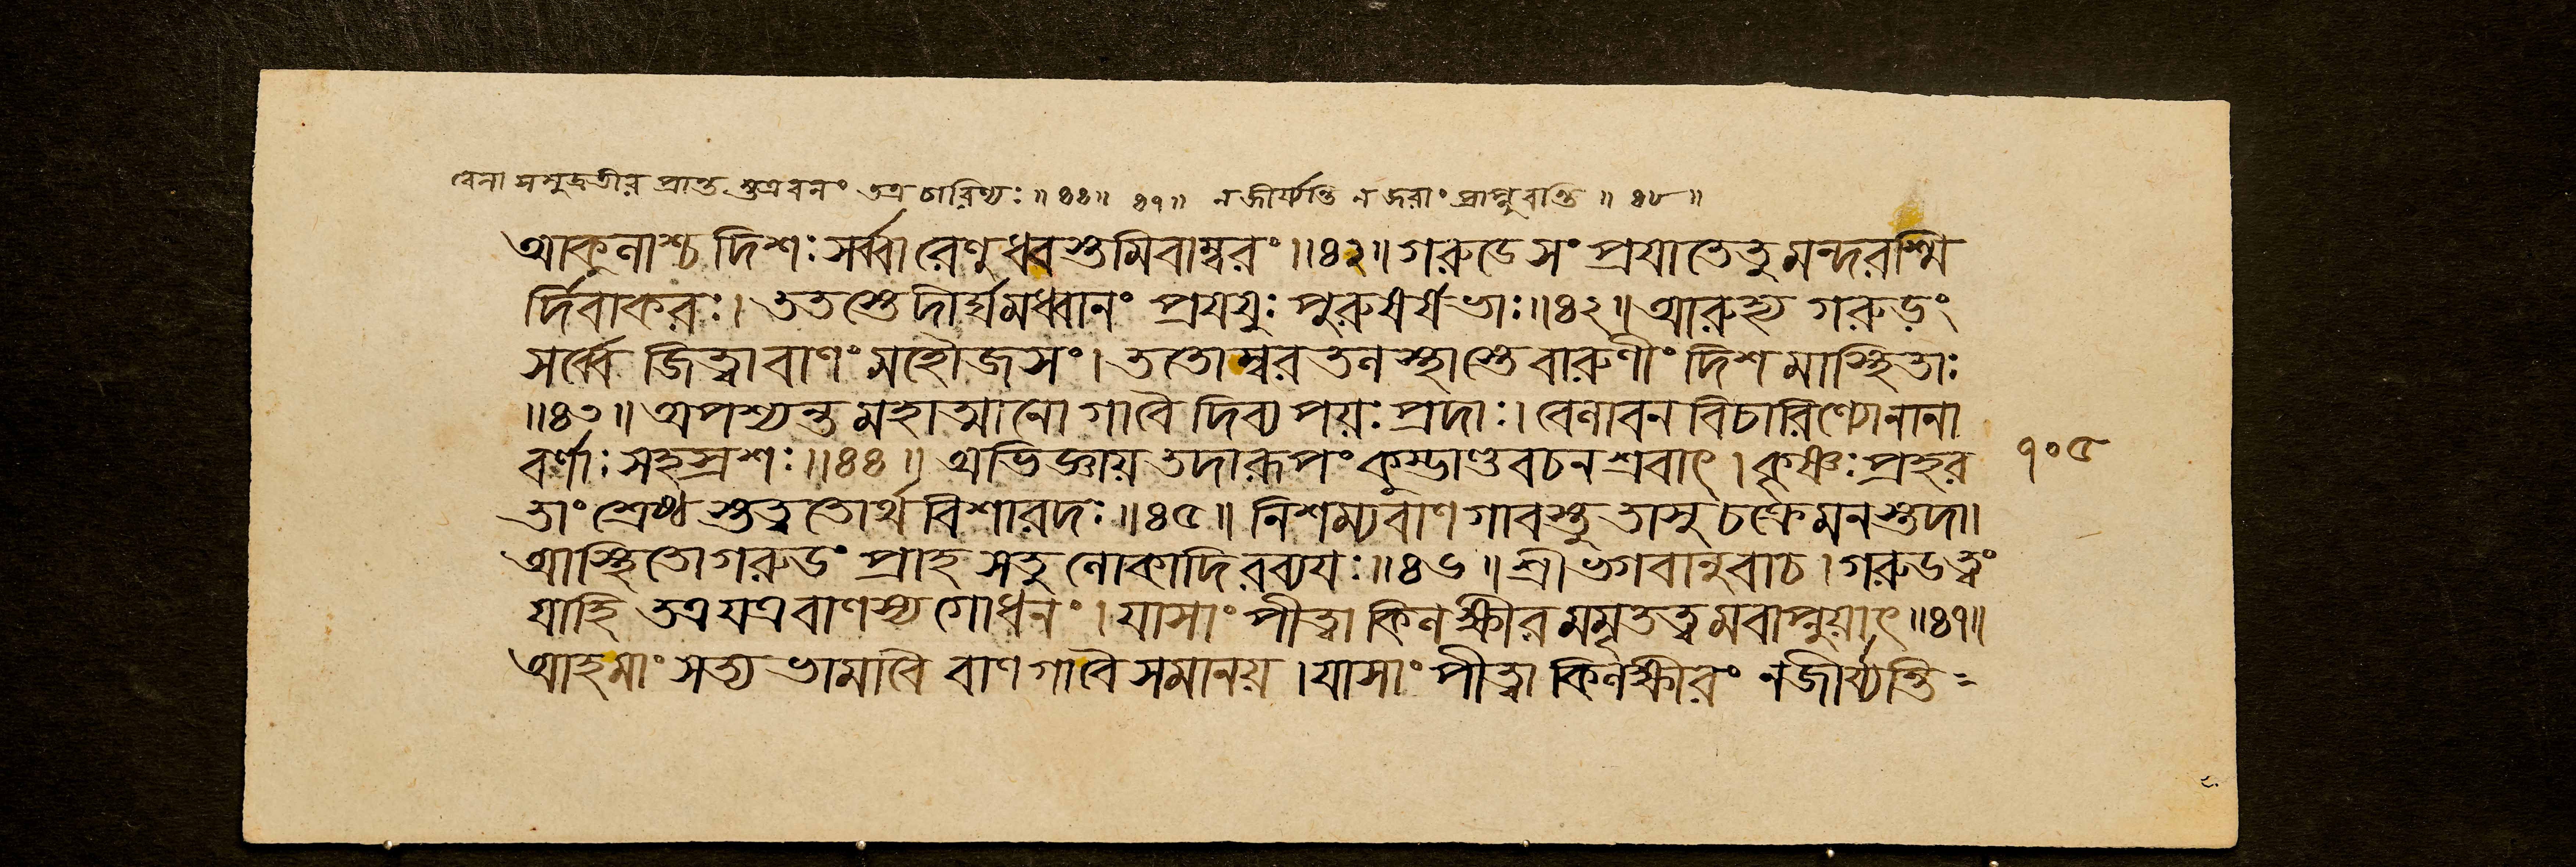 বেনা সমুদ্রতীর প্রান্ত শুত্রবনং তত্র চারিণ্যঃ ॥ ৪৪॥ ৪৭॥ ন জীর্য্যন্তি ন জরাং প্রাপ্নুবন্তি ॥ ৪৮ ॥
আকুনাশ্চ দিশঃ সর্ব্বা রেণুধ্বস্তমিবাম্বরং ॥৪২॥ গরুডে সং প্রযাতে তু মন্দরশ্মি
র্দিবাকরঃ । ততস্তে দীর্ঘমধ্বানং প্রযযুঃ পুরুষর্ষভাঃ ॥৪২॥ আরুহ্য গরুড়ং
সর্ব্বে জিত্বা বাণং মহৌজসং । ততোম্বরতনস্থাস্তে বারুণীং দিশমাস্থিতাঃ
॥৪৩॥ অপশ্যন্ত মহাত্মানো গাবৈ দিব্য পয়ঃ প্রদাঃ । বেনাবন বিচারিণ্যোনানা
বর্ণাঃ সহস্রশঃ ॥৪৪॥ অভিজ্ঞায় তদারূপং কুম্ভাণ্ডবচন শ্রবাৎ । কৃষ্ণঃ প্রহর ১০৫
তাং শ্রেষ্ঠ স্তত্ত্বতোর্থ বিশারদঃ ॥৪৫॥ নিশম্য বাণ গাবস্তু তাসু চক্রে মনস্তদা।
আস্থিতো গরুডং প্রাহ স তু নোকাদিরব্যযঃ ॥৪৬॥ শ্রীভগবানুবাচ । গরুডত্বং
যাহি তত্র যত্র বাণস্য গোধনং । যাসাং পীত্বা কিন ক্ষীরমমৃতত্বমবাপ্নুয়াৎ ॥৪৭॥
আহ মাং সত্য ভামাবৈ বাণ গাবৈ সমানয় । যাসাং পীত্বা কিনক্ষীরং ন জীর্য্যন্তি